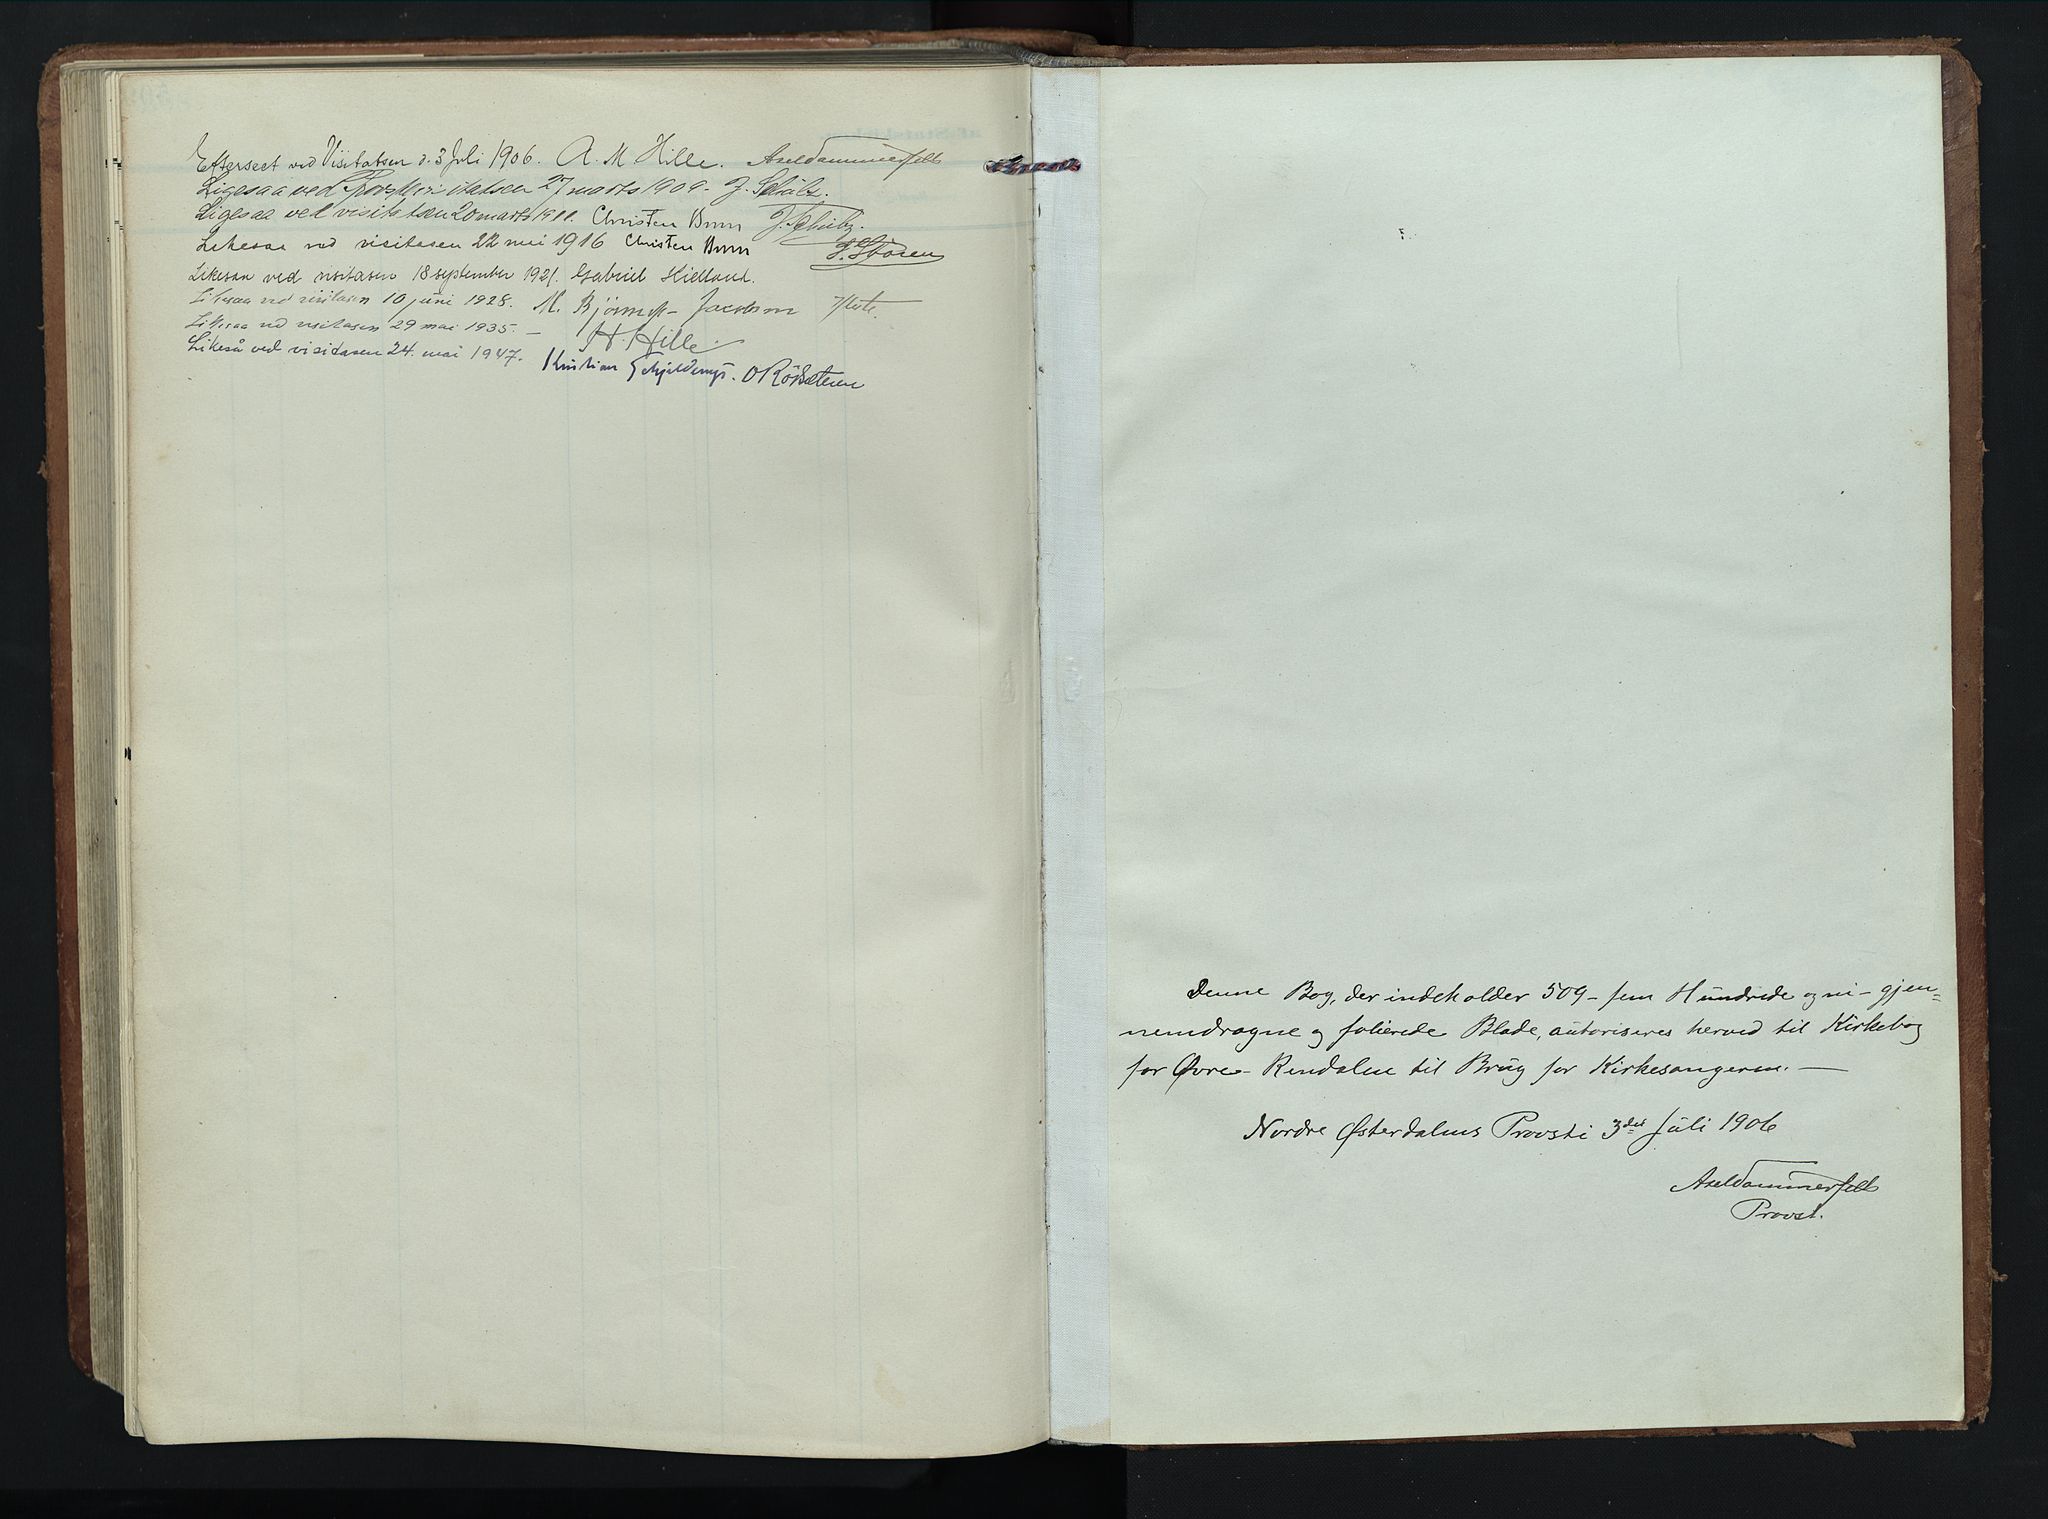 Efterseet ved Visitatsen d. 3 Juli 1906. A. M Hille. Axel Sommerfelt
Ligesaa ved Provstevisitatsen 27 marts 1909. J. Schütz.
Ligesaa ved visitatsen 20 marts 1911. Christen Brun J. Schütz.
Likesaa ved visitasen 22 mai 1916 Christen Brun
Likesaa ved visitasen 18 september 1921. Gabriel Kielland.
Likesaa ved visitasen 10 juni 1928. M. Bjønnes-Jacobsen
Likesaa ved visitasen 29 mai 1935. — H. Hille.
Likeså ved visitasen 24. mai 1947. Kristian Schjelderup. O Rødseteren
Denne Bog, der indeholder 509 – fem Hundrede og ni – gjen=
nemdragne og folierede Blade, autoriseres herved til Kirkebog
for Øvre-Rendalen til Brug for Kirkesangeren. —
Nordre Østerdalens Provsti 3die Juli 1906
Axel Sommerfelt
Provst.